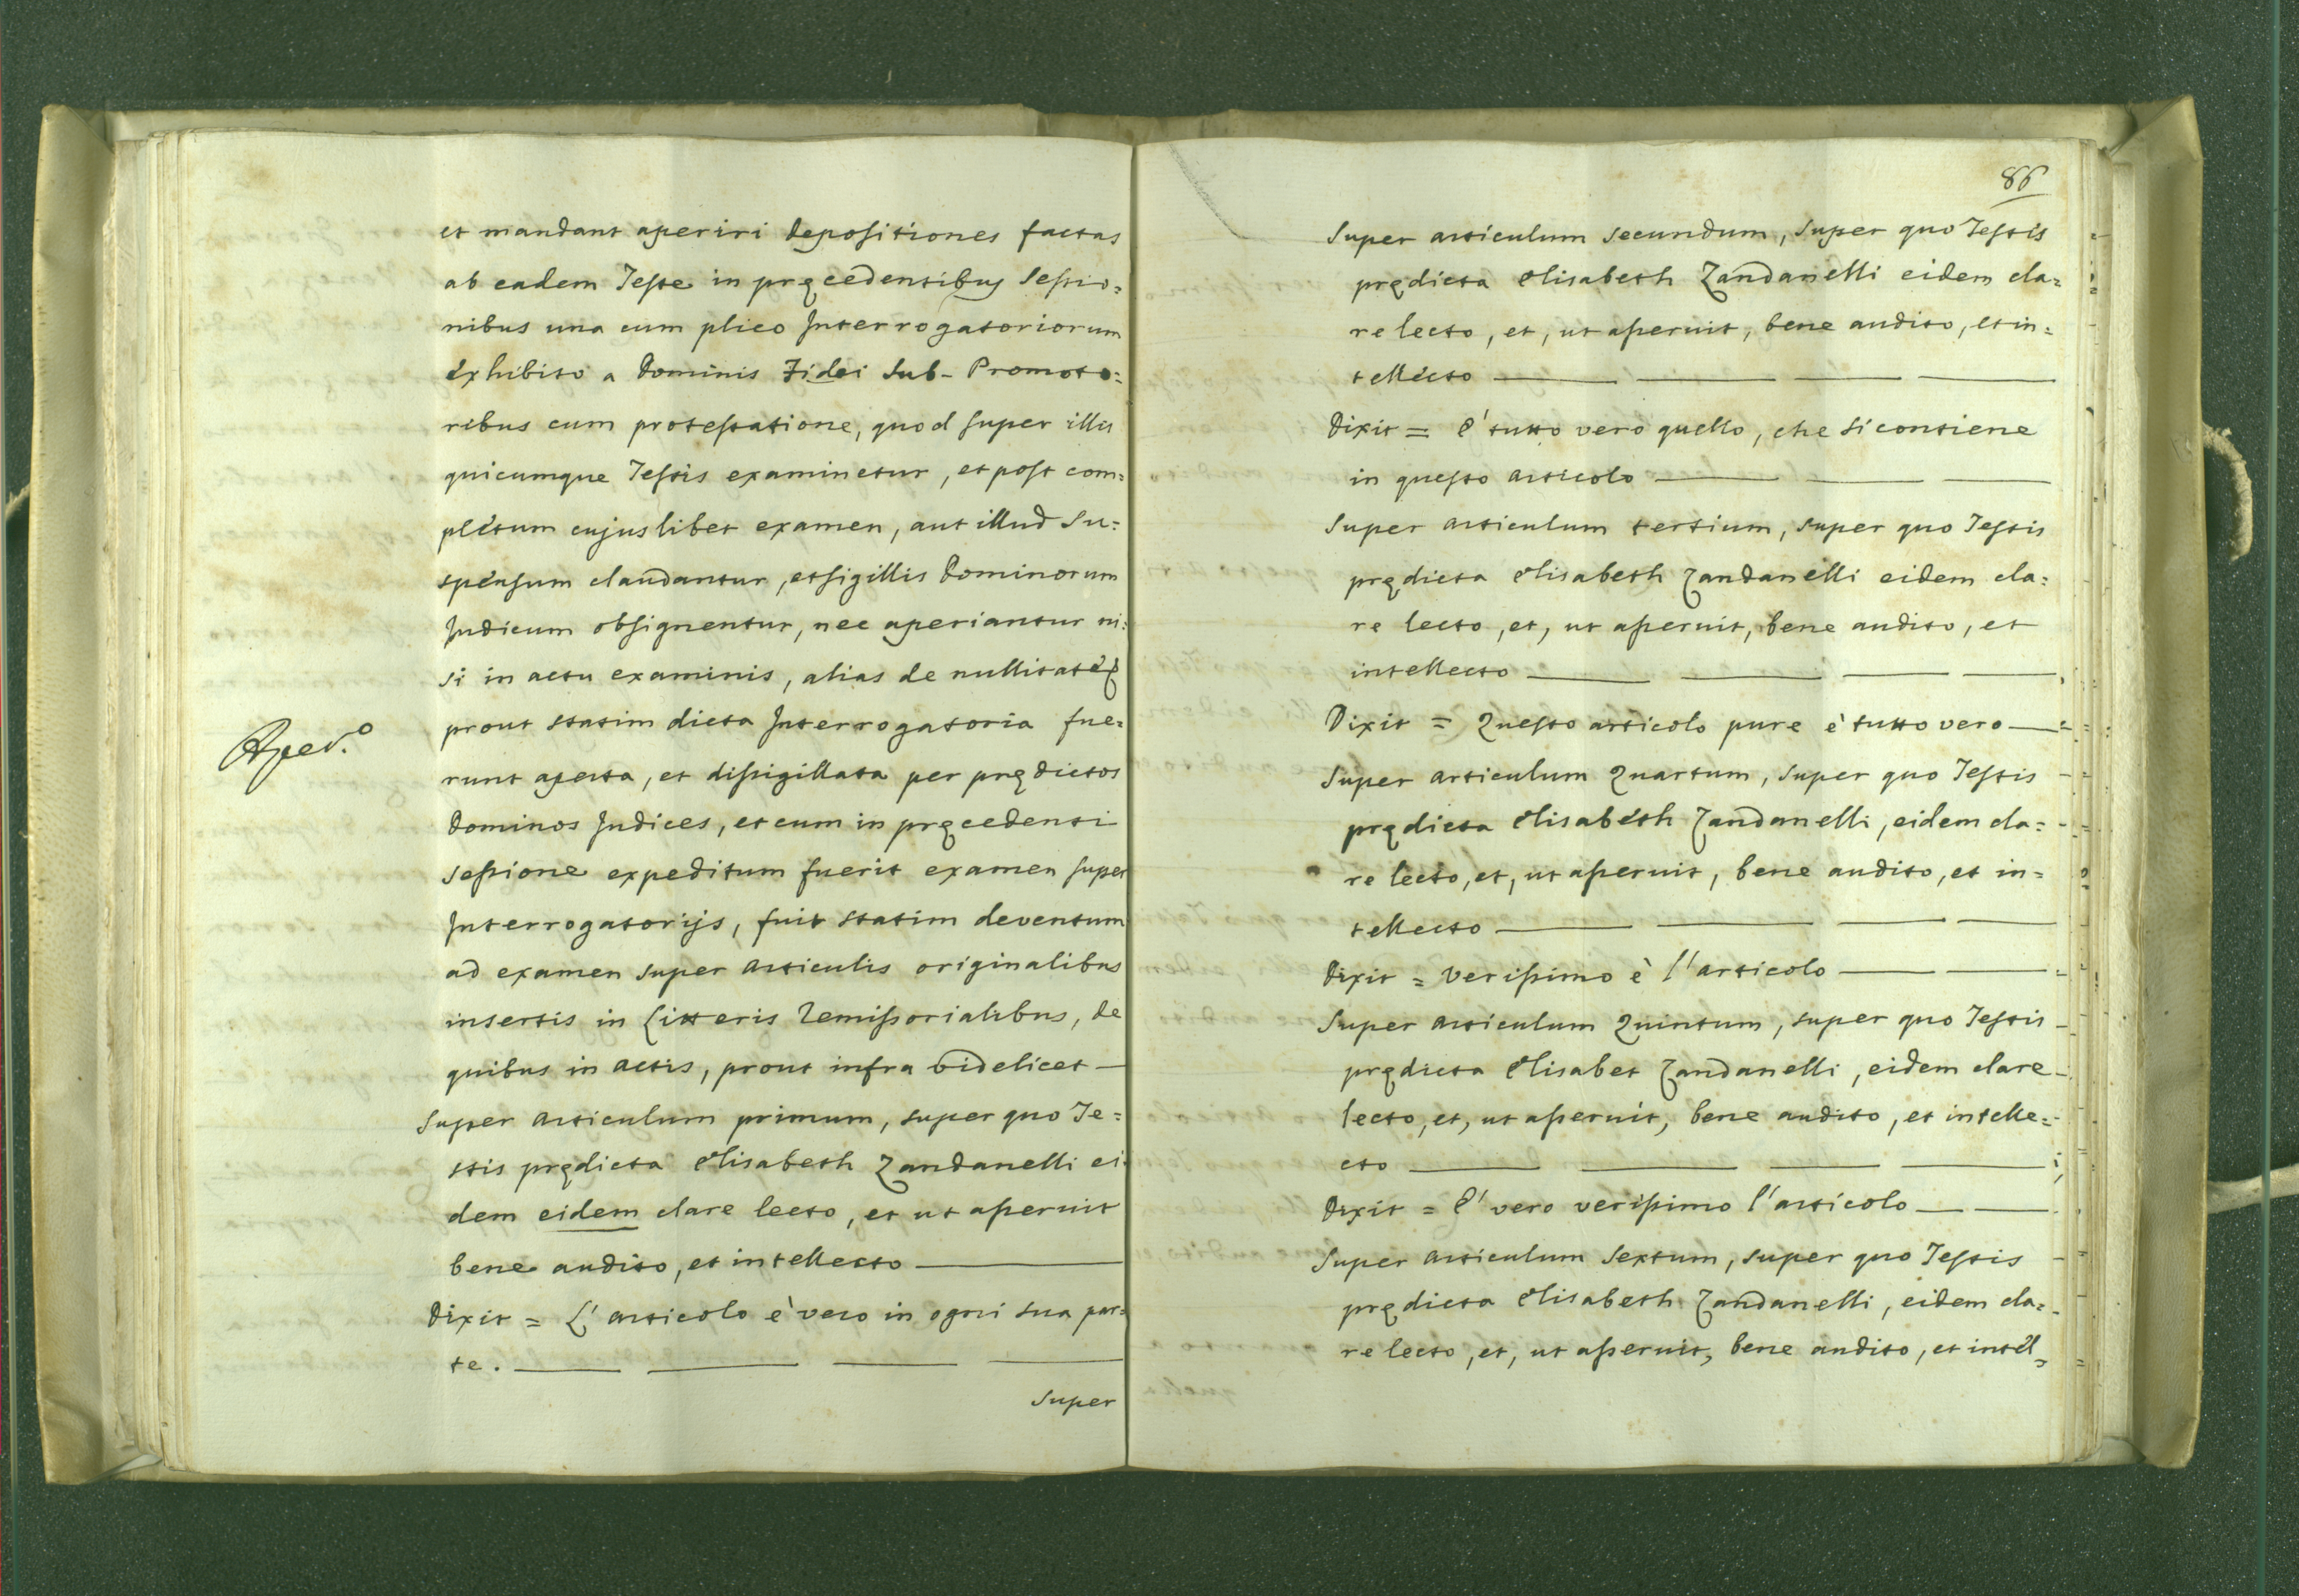 et mandant aperiri depositiones factas
ab eadem Teste in pręcedentibus Sessio=
nibus una cum plico Interrogatoriorum
exhibito a Dominis Fidei Sub-Promoto=
ribus cum protestatione, quod super illis
quicumque Testis examinetur, et post com=
pletum cujuslibet examen, aut illud su=
spensum claudantur, et sigillis Dominorum
Judicum obsignentur, nec aperiantur ni=
si in actu examinis, alias de nullitate
Aper.o
prout statim dicta Interrogatoria fue=
runt aperta, et dissigillata per prędictos
Dominos Judices, et cum in pręcedenti
sessione expeditum fuerit examen super
Interrogatorijs, fuit statim deventum
ad examen super Articulis originalibus
insertis in Litteris Remissorialibus, de
quibus in Actis, prout infra videlicet —
Super Articulum primum, super quo Te=
stis prędicta Elisabeth Zandanelli ei=
dem eidem clare lecto, et ut asseruit
bene audito, et intellecto —
Dixit = L'Articolo è vero in ogni sua par=
te. — — — —
Super
86
Super articulum secundum, super quo Testis
prędicta Elisabeth Zandanelli eidem cla=
re lecto, et, ut asseruit, bene audito, et in=
tellecto — — — —
Dixit = E' tutto vero quello, che si contiene
in questo Articolo — — —
Super Articulum tertium, super quo Testis
prędicta Elisabeth Zandanelli eidem cla=
re lecto, et, ut asseruit, bene audito, et
intellecto — — — —
Dixit = Questo articolo pure è tutto vero —
Super Articulum Quartum, super quo Testis
prędicta Elisabeth Zandanelli, eidem cla=
re lecto, et, ut asseruit, bene audito, et in=
tellecto — — — —
Dixit = Verissimo è l'articolo — —
Super Articulum Quintum, super quo Testis
prędicta Elisabet Zandanelli, eidem clare
lecto, et, ut asseruit, bene audito, et intelle=
cto — — — —
Dixit = E' vero verissimo l'articolo — —
Super Articulum Sextum, super quo Testis
prędicta Elisabeth Zandanelli, eidem cla=
re lecto, et, ut asseruit, bene audito, et intel=